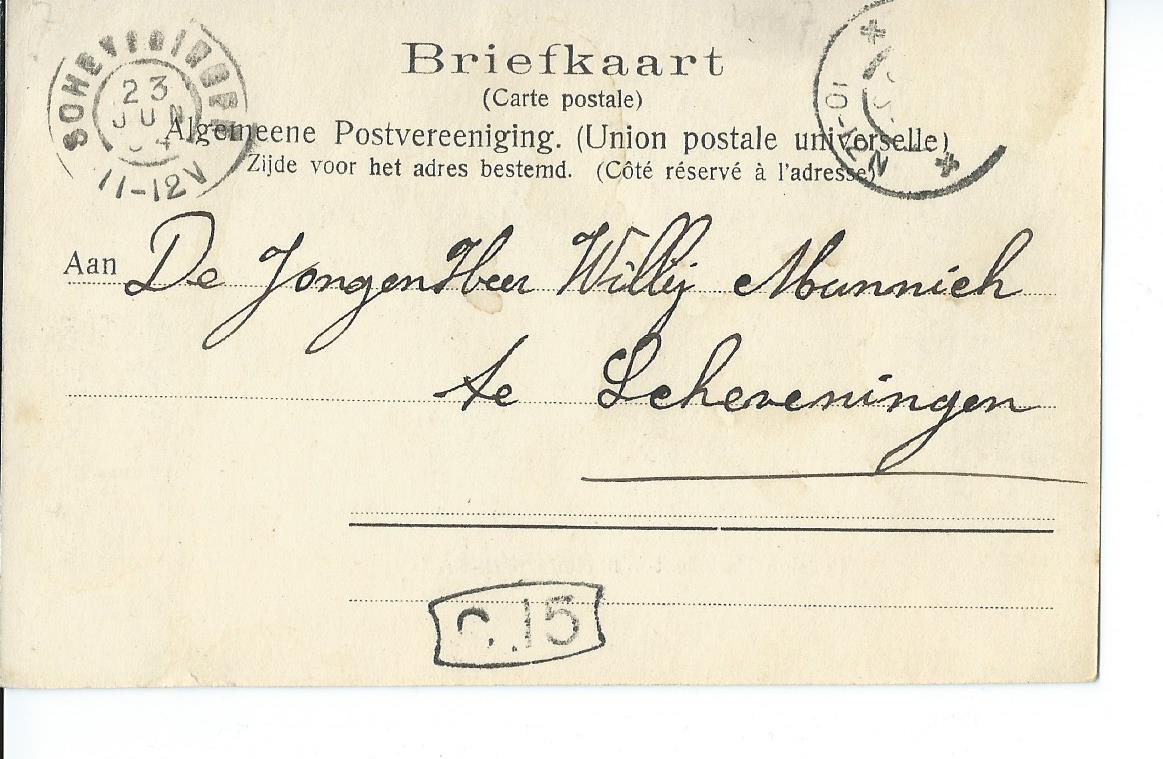 Briefkaart
(Carte postale)
Algemeene Postvereeniging. (Union postale universelle)
Zijde voor het adres bestemd. (Côté réservé à l'adresse)
23
JUN
04
11-12V
10-17N
Aan De JongenHeer Willij Mannich
te Scheveningen
C.15